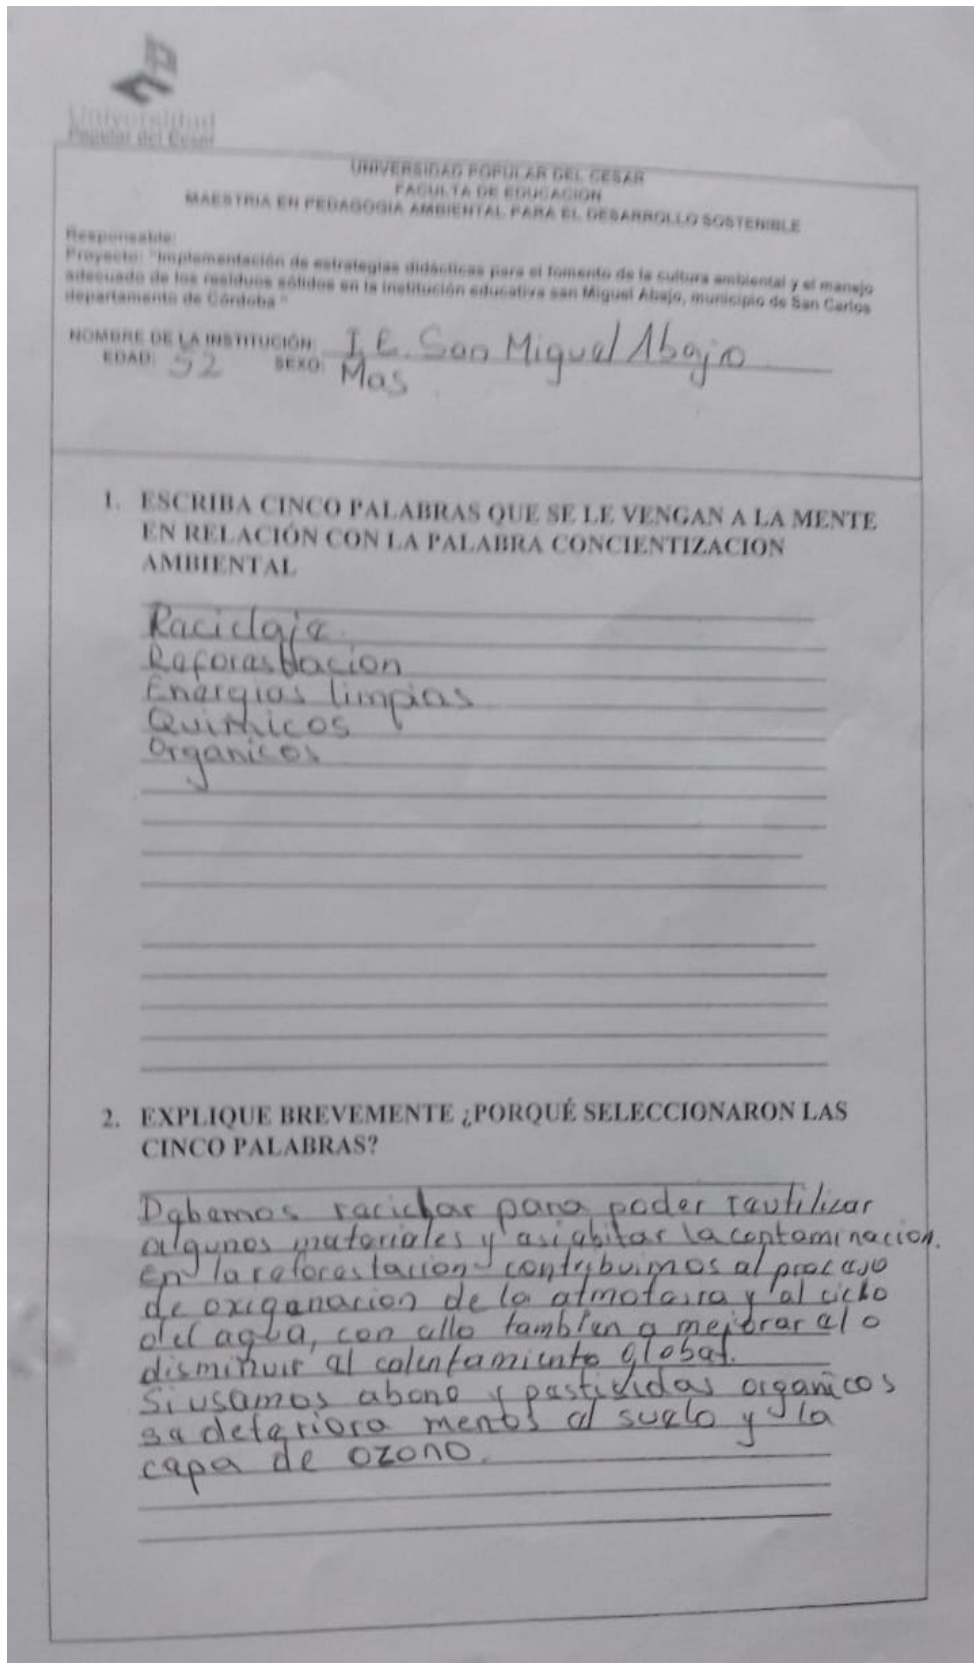 Universidad
Popular del Cesar
UNIVERSIDAD POPULAR DEL CESAR
FACULTA DE EDUCACION
MAESTRIA EN PEDAGOGIA AMBIENTAL PARA EL DESARROLLO SOSTENIBLE
Responsable:
Proyecto: "Implementación de estrategias didácticas para el fomento de la cultura ambiental y el manejo
adecuado de los residuos sólidos en la institución educativa san Miguel Abajo, municipio de San Carlos
departamento de Córdoba "
NOMBRE DE LA INSTITUCIÓN: I.E. San Miguel Abajo
EDAD: 52 SEXO: Mas
1. ESCRIBA CINCO PALABRAS QUE SE LE VENGAN A LA MENTE
EN RELACIÓN CON LA PALABRA CONCIENTIZACION
AMBIENTAL
Reciclaje
Reforestacion
Energias limpias
Quimicos
Organicos
2. EXPLIQUE BREVEMENTE ¿PORQUÉ SELECCIONARON LAS
CINCO PALABRAS?
Debemos reciclar para poder reutilizar
algunos materiales y asi abitar la contaminacion.
en la reforestacion contribuimos al proceso
de oxiganacion de la atmofeira y al ciclo
del agua, con ello tambien a mejorar el o
disminuir al calentamiento global.
Si usamos abono y pesticidas organicos
se deteriora menos el suelo y la
capa de ozono.